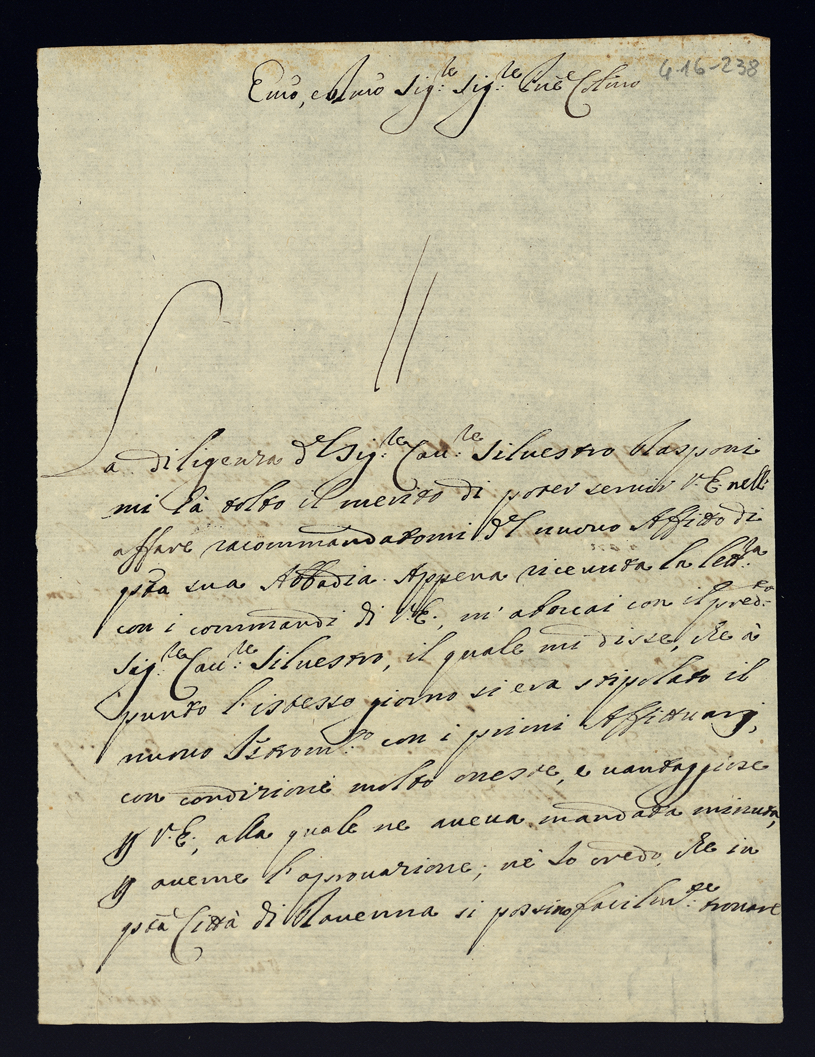 Emo, e Rmo Sig:re Sig:re Pne Colmo
4-16-238
La diligenza del Sig:re Cav:re Silvestro Rasponi
mi hà tolto il merito di poter servir V.E. nell'
affare racommandatomi del nuovo Affitto di
qsta sua Abbadia. Appena ricevuta la lett:ra
con i commandi di V.E., m'abocai con il pred:to
Sig:re Cav:re Silvestro, il quale mi disse, che à
punto l'istesso giorno si era stipolato il
nuovo Istrom:to con i primi Affittuarj,
con condizioni molto oneste, e vantaggiose
p V.E., alla quale ne aveva mandata minuta,
p averne l'aprovazione; nè Io credo, che in
qsta Città di Ravenna si possino facilm:te trovare